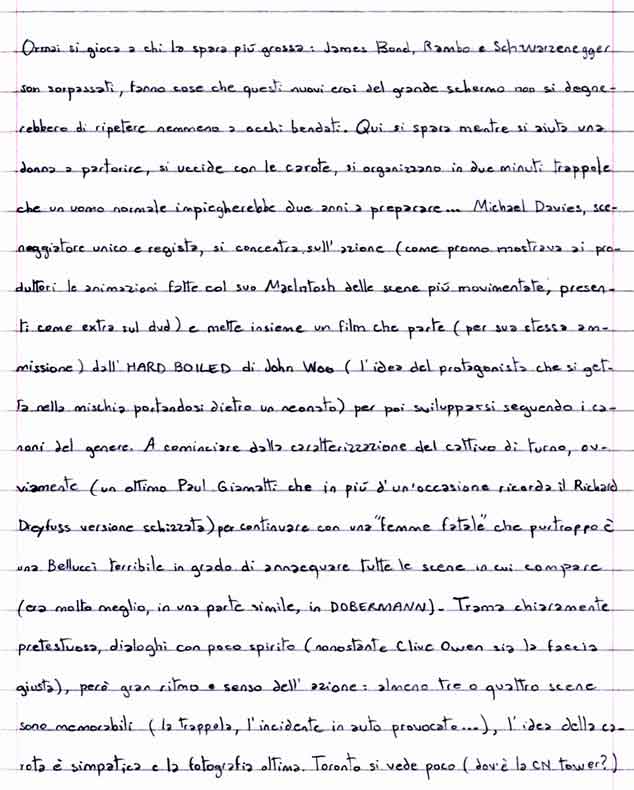 Ormai si gioca a chi la spara più grossa: James Bond, Rambo e Schwarzenegger
son sorpassati, fanno cose che questi nuovi eroi del grande schermo non si degne-
rebbero di ripetere nemmeno a occhi bendati. Qui si spara mentre si aiuta una
donna a partorire, si uccide con le carote, si organizzano in due minuti trappole
che un uomo normale impiegherebbe due anni a preparare... Michael Davies, sce-
neggiatore unico e regista, si concentra sull'azione (come promo mostrava ai pro-
duttori le animazioni fatte col suo MacIntosh delle scene più movimentate, presen-
ti come extra sul dvd) e mette insieme un film che parte (per sua stessa am-
missione) dall'HARD BOILED di John Woo (l'idea del protagonista che si get-
ta nella mischia portandosi dietro un neonato) per poi svilupparsi seguendo i ca-
noni del genere. A cominciare dalla caratterizzazione del cattivo di turno, ov-
viamente (un ottimo Paul Giamatti che in più d'un'occasione ricorda il Richard
Dreyfuss versione schizzata) per continuare con una "femme fatale" che purtroppo è
una Bellucci terribile in grado di annacquare tutte le scene in cui compare
(era molto meglio, in una parte simile, in DOBERMANN). Trama chiaramente
pretestuosa, dialoghi con poco spirito (nonostante Clive Owen sia la faccia
giusta), però gran ritmo e senso dell'azione: almeno tre o quattro scene
sono memorabili (la trappola, l'incidente in auto provocato...), l'idea della ca-
rota è simpatica e la fotografia ottima. Toronto si vede poco (dov'è la CN tower?)